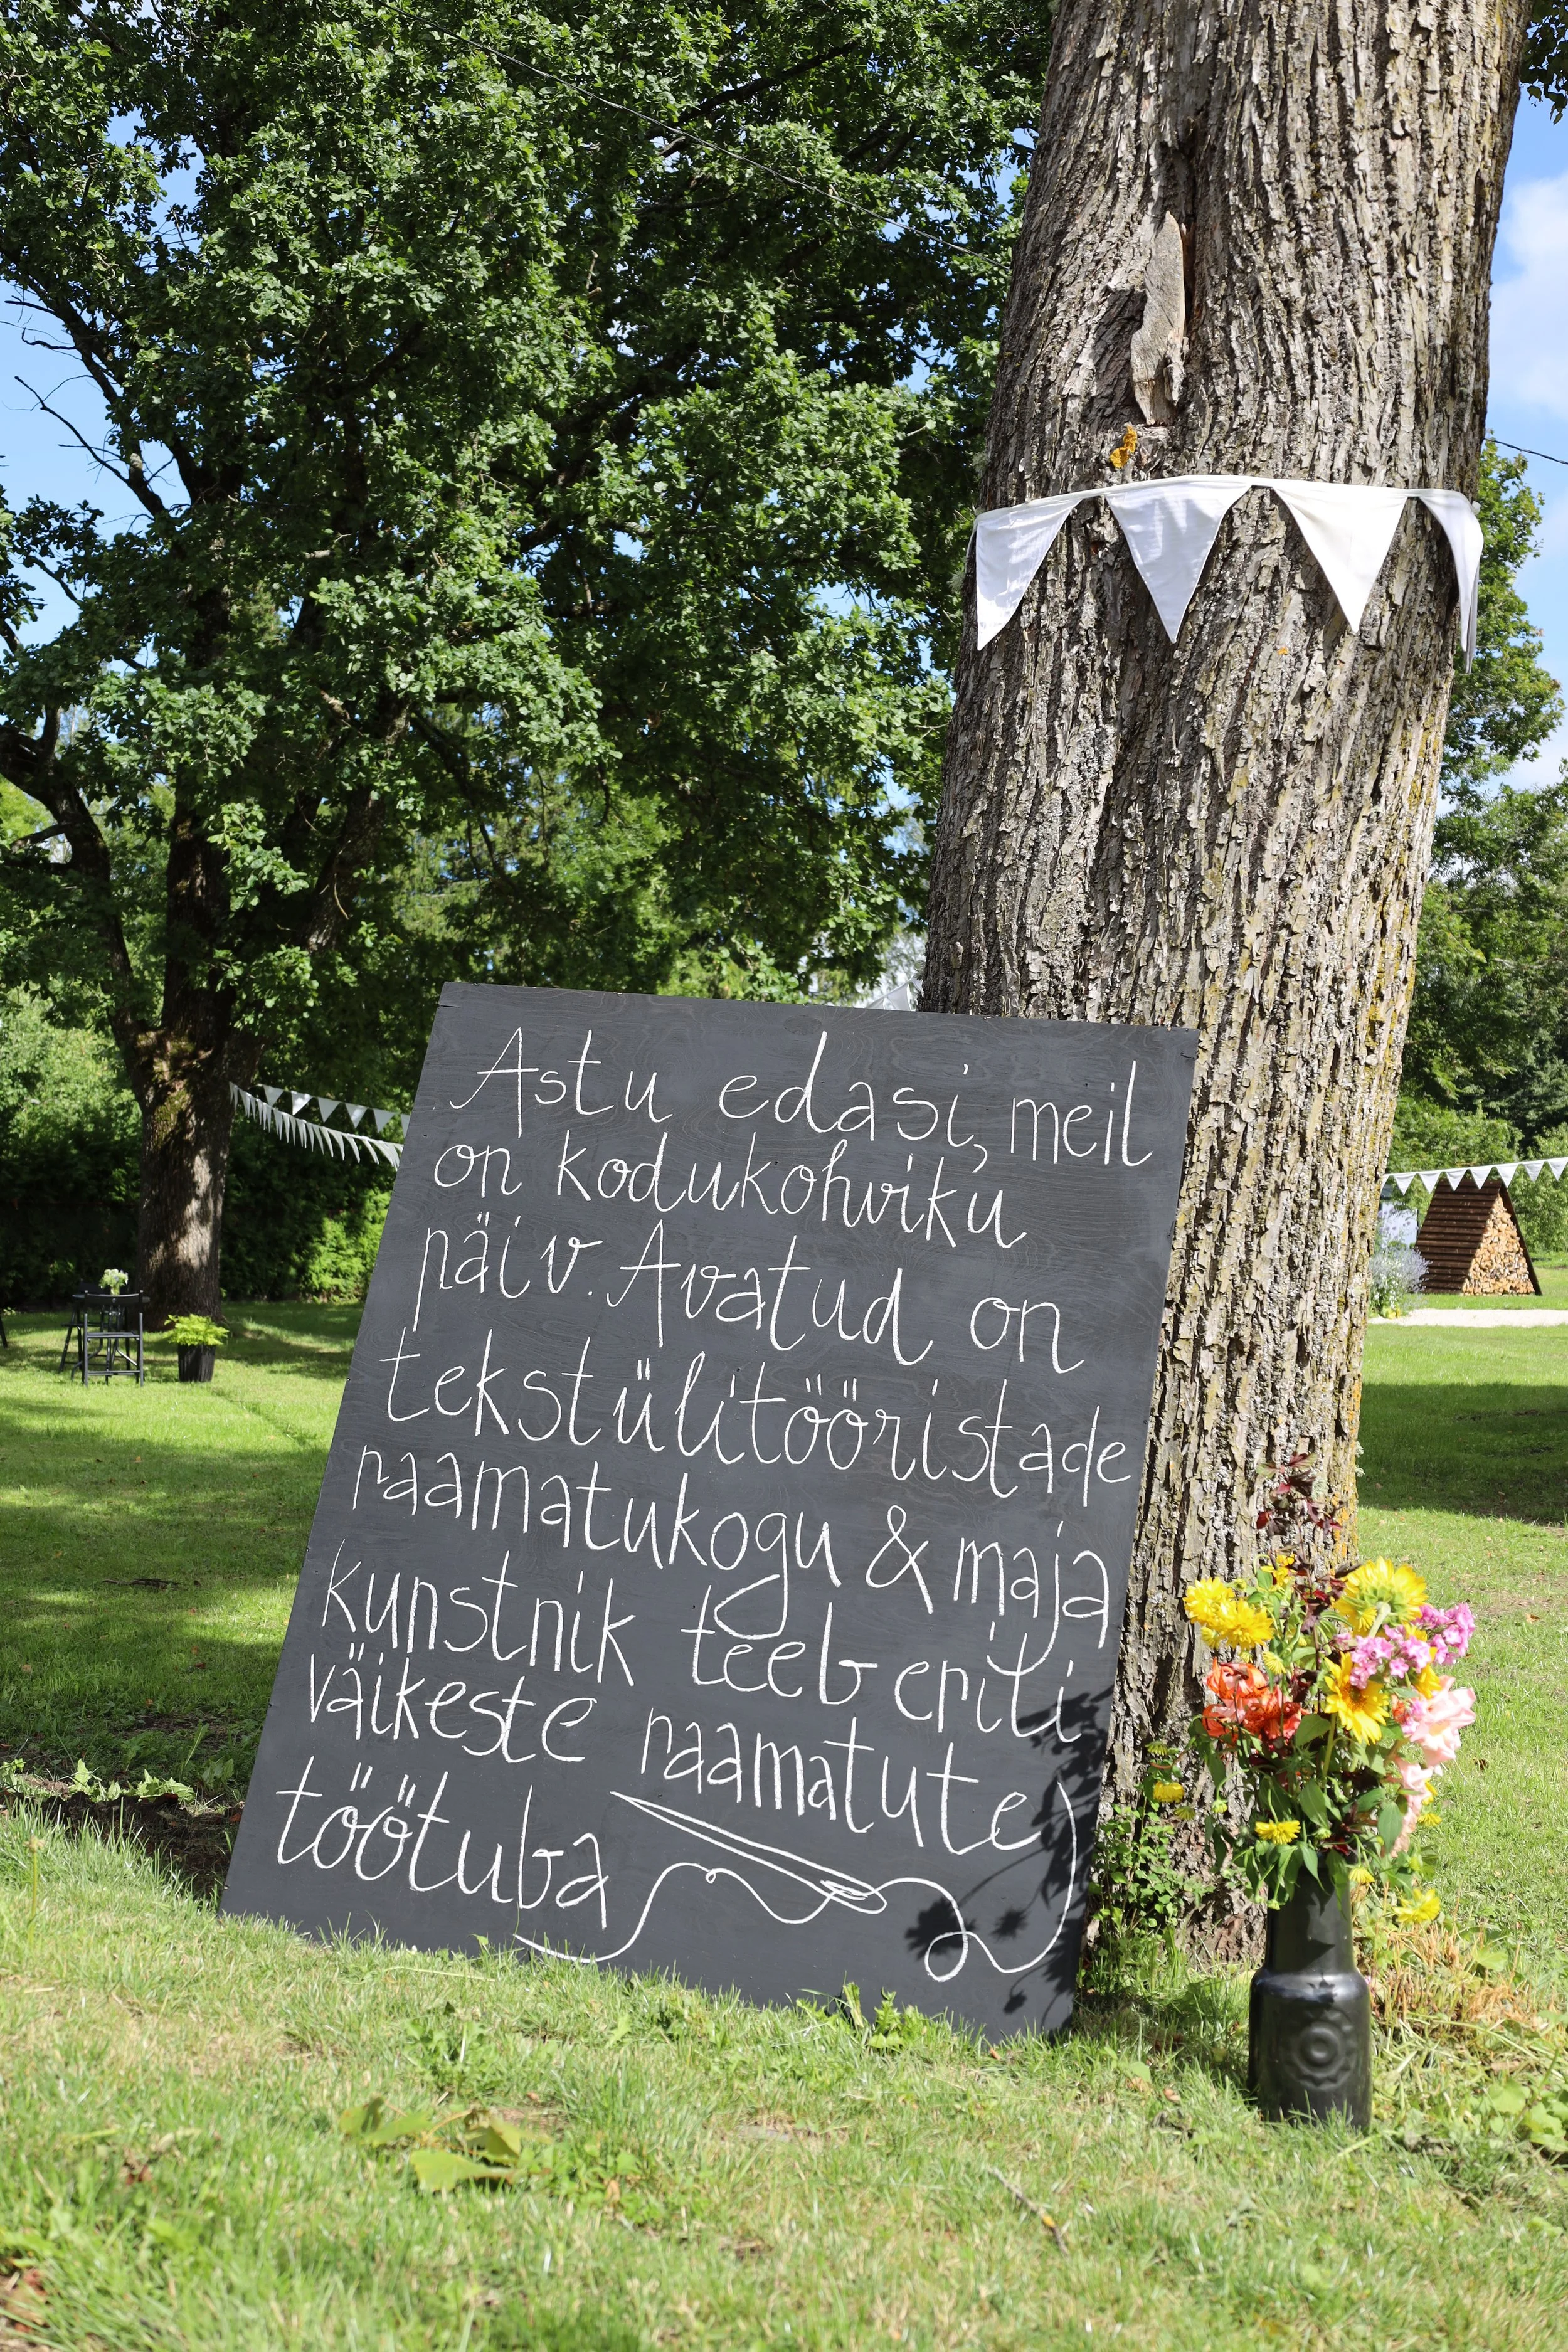 Astu edasi, meil
on kodukohviku
päiv. Avatud on
tekstiilitööristade
raamatukogu & maja
kunstnik teeb eriti
väikeste raamatute
töötuba